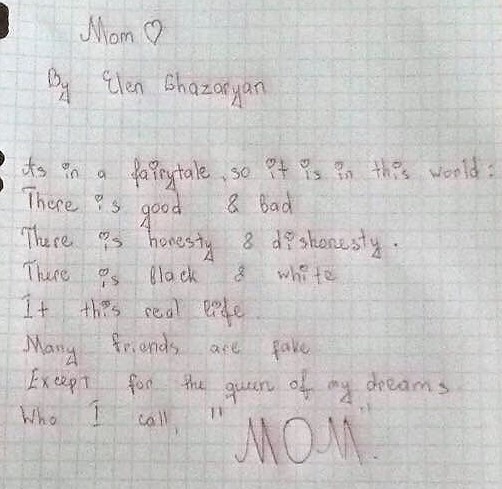 Mom ♡
By Elen Ghazaryan
As in a fairytale, so it is in this world:
There is good & Bad
There is honesty & dishonesty.
There is Black & white
It this real life.
Many friends are fake
Except for the queen of my dreams
Who I call, "MOM".